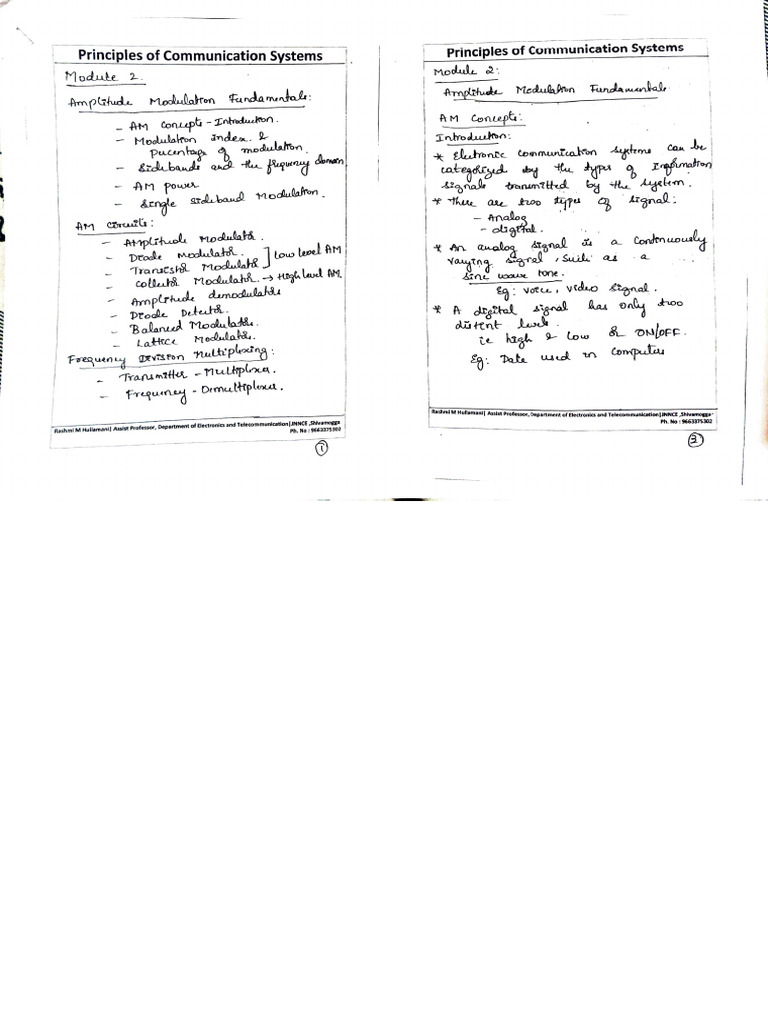 Principles of Communication Systems
Module 2.
Amplitude Modulation Fundamentals:
- AM Concepts - Introduction.
- Modulation Index &
Percentage of modulation.
- Sidebands and the frequency domain
- AM power
- Single sideband Modulation.
AM circuits:
- Amplitude Modulator.
- Diode Modulator.
- Transistor Modulator ] low level AM
- Collector Modulator → High level AM.
- Amplitude demodulators
- Diode Detector.
- Balanced Modulator.
- Lattice Modulator.
Frequency Division Multiplexing:
- Transmitter - Multiplexer.
- Frequency - Demultiplexer.
Rashmi M Hullamani| Assist Professor, Department of Electronics and Telecommunication|JNNCE ,Shivamogga
Ph. No : 9663375302
1
Principles of Communication Systems
Module 2:
Amplitude Modulation Fundamentals
AM Concepts:
Introduction:
* Electronic communication systems can be
categorized by the types of Information
signals transmitted by the system.
* There are two types of signal:
- Analog
- digital.
* An analog signal is a continuously
varying signal, such as a
sine wave tone.
Eg: voice, video signal.
* A digital signal has only two
distint levels.
ie high & low or ON/OFF.
Eg: Date used in computers
Rashmi M Hullamani| Assist Professor, Department of Electronics and Telecommunication|JNNCE ,Shivamogga
Ph. No : 9663375302